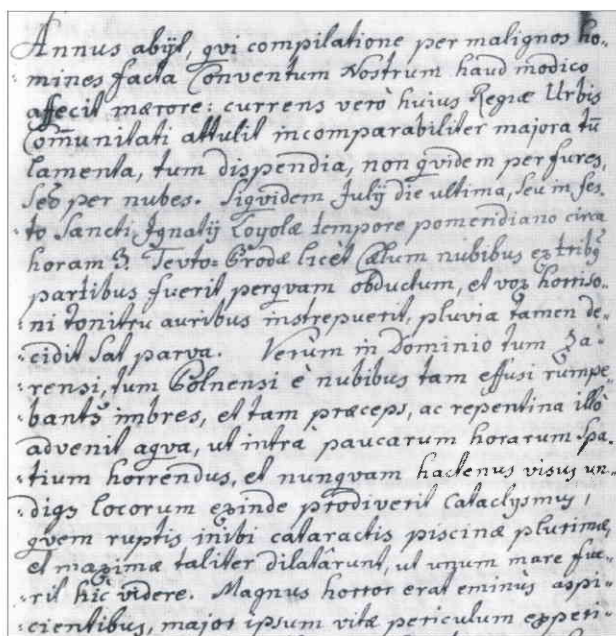 Annus abijt, qvi compilatione per malignos ho-
-mines facta Conventum Nostrum haud modico
affecit mærore: currens verò huius Regiæ Urbis
Com̃unitati attulit incomparabiliter majora tũ
lamenta, tum dispendia, non qvidem per fures,
sed per nubes. Siqvidem Julij die ultima, seu in fes
-to Sancti Ignatij Loyolæ tempore pomeridiano circa
horam 3. Tevto-Brodæ licèt Cælum nubibus ex tribq
partibus fuerit perqvam obductum, et vox horriso-
-ni tonitru auribus instrepuerit, pluvia tamen de-
-cidit sat parva. Verùm in Dominio tum
-rensi, tum Polnensi è nubibus tam effusi rumpe
-bantr imbres, et tam præceps, ac repentina illò
advenit aqva, ut intra paucarum horarum spa-
-tium horrendus, et nunqvam hactenus visus un-
-diqs locorum exinde prodiverit Cataclysmus,
qvem ruptis inibi cataractis piscinæ plurimæ,
et maximæ taliter dilatârunt, ut unum mare fue-
-rit hìc videre. Magnus horror erat eminùs aspi-
-cientibus, major ipsum vitæ periculum experi-